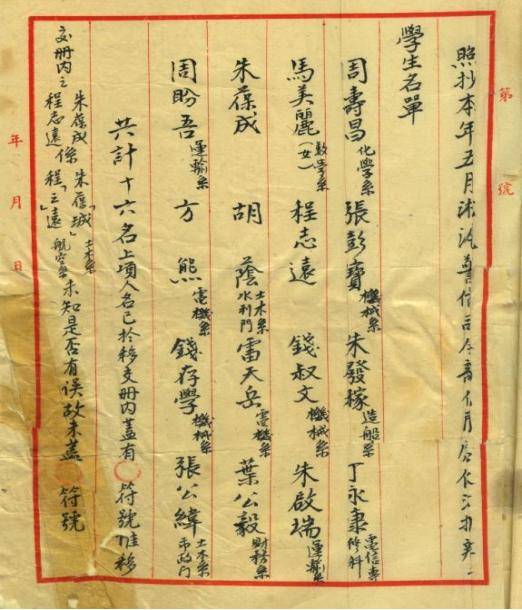 第 號
照抄本年五月
學生名單
周壽昌 化學系 張彭寶 機械系 朱發稼 造船系 丁永康 電信專修科
馬美麗(女) 數學系 程志遠 錢叔文 機械系 朱啟瑞 運輸系
朱葆成 胡蔭 土木系水利門 雷天岳 電機系 葉公毅 財務系
周盼吾 運輸系 方熊 電機系 錢存學 機械系 張公緯 土木系市政門
共計十六名上項人名已於移交冊內蓋有○符號惟移
交冊內之朱葆成程志遠係朱葆「珹」土木系程「之」遠航空系未知是否有误故未蓋○符號
年 月 日